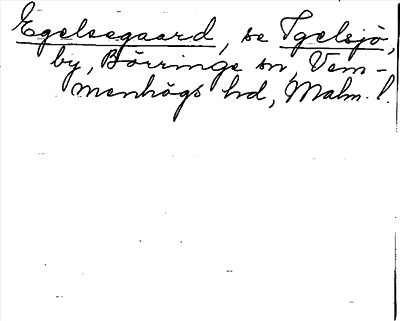 Egelsegaard, se Igelsjö,
by, Börringe sn, Vem-
menhögs hd, Malm. l.